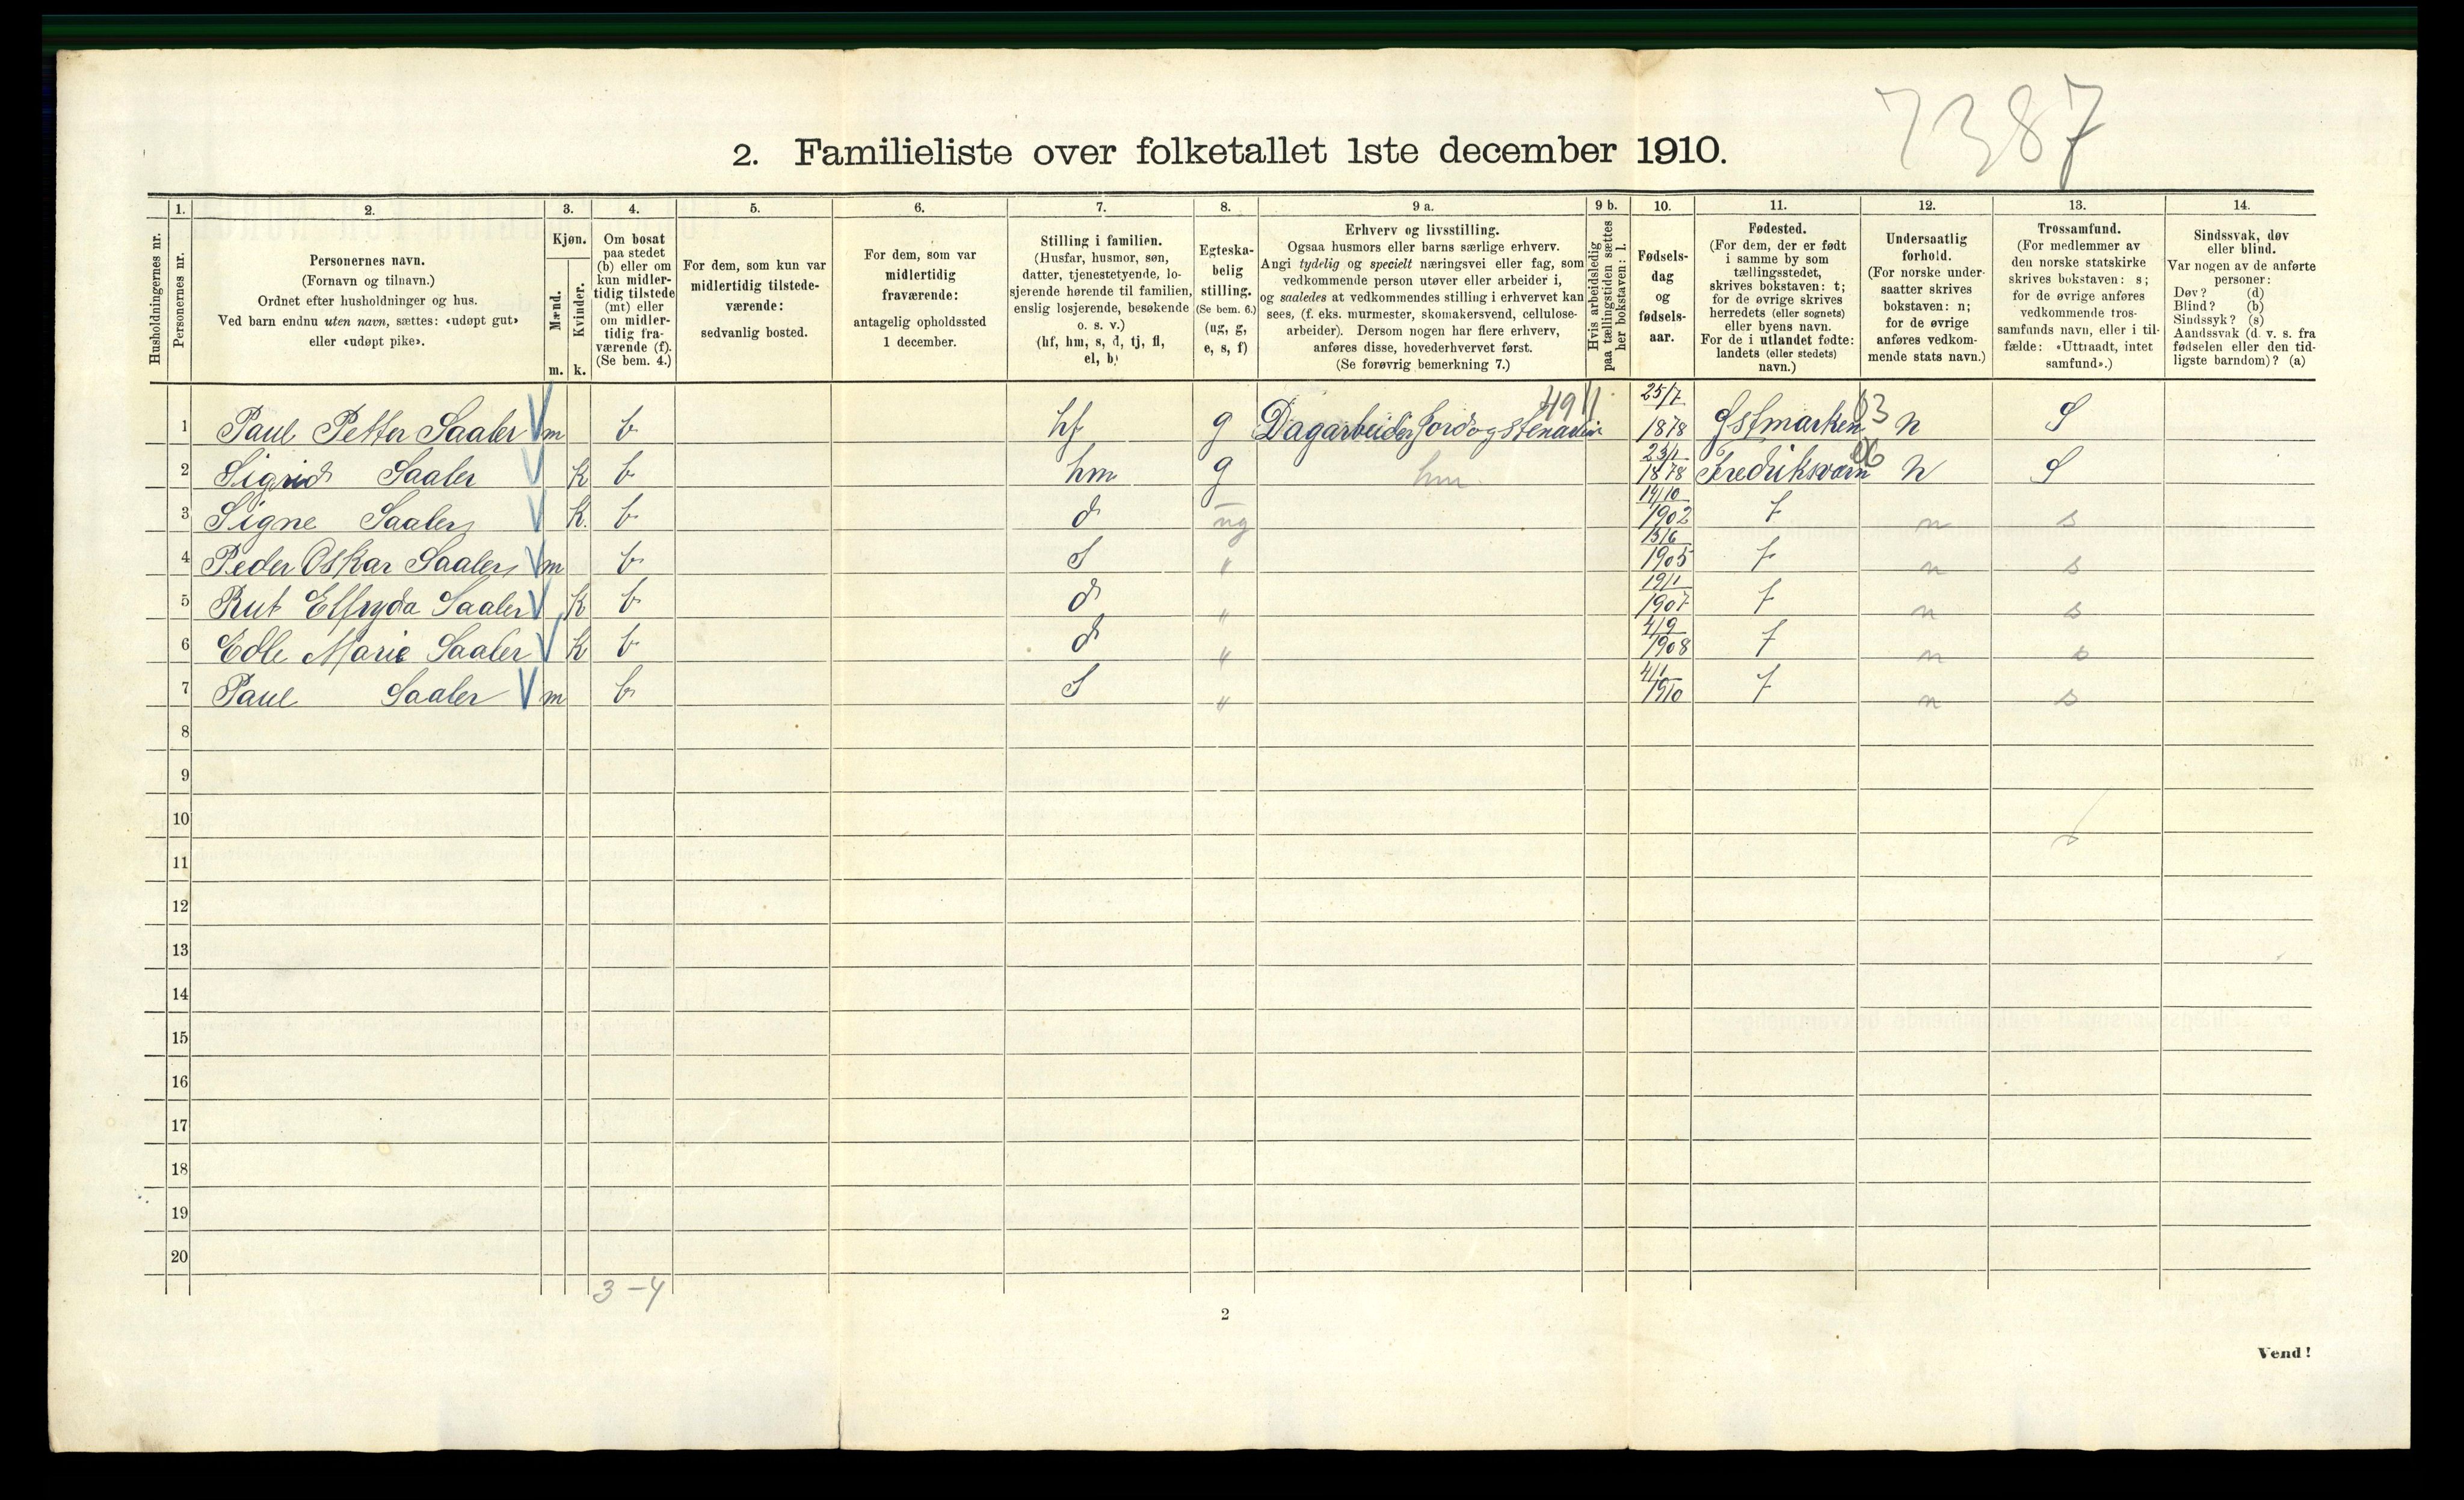 7387
2. Familieliste over folketallet 1ste december 1910.
Husholdningernes nr.
1.
Personernes nr.
2.
Personernes navn.
(Fornavn og tilnavn.)
Ordnet efter husholdninger og hus.
Ved barn endnu uten navn, sættes: «udøpt gut»
eller «udøpt pike».
3.
Kjøn.
Mænd.
m.
Kvinder.
k.
4.
Om bosat
paa stedet
(b) eller om
kun midler-
tidig tilstede
(mt) eller
om midler-
tidig fra-
værende (f).
(Se bem. 4.)
5.
For dem, som kun var
midlertidig tilstede-
værende:
sedvanlig bosted.
6.
For dem, som var
midlertidig
fraværende:
antagelig opholdssted
1 december.
7.
Stilling i familien.
(Husfar, husmor, søn,
datter, tjenestetyende, lo-
sjerende hørende til familien,
enslig losjerende, besøkende
o. s. v.)
(hf, hm, s, d, tj, fl,
el, b)
8.
Egteska-
belig
stilling.
(Se bem. 6.)
(ug, g,
e, s, f)
9 a.
Erhverv og livsstilling.
Ogsaa husmors eller barns særlige erhverv.
Angi tydelig og specielt næringsvei eller fag, som
vedkommende person utøver eller arbeider i,
og saaledes at vedkommendes stilling i erhvervet kan
sees, (f. eks. murmester, skomakersvend, cellulose-
arbeider). Dersom nogen har flere erhverv,
anføres disse, hovederhvervet først.
(Se forøvrig bemerkning 7.)
9 b.
Hvis arbeidsledig
paa tællingstiden sættes
her bokstaven: l.
10.
Fødsels-
dag
og
fødsels-
aar.
11.
Fødested.
(For dem, der er født
i samme by som
tællingsstedet,
skrives bokstaven: t;
for de øvrige skrives
herredets (eller sognets)
eller byens navn.
For de i utlandet fødte:
landets (eller stedets)
navn.)
12.
Undersaatlig
forhold.
(For norske under-
saatter skrives
bokstaven: n;
for de øvrige
anføres vedkom-
mende stats navn.)
13.
Trossamfund.
(For medlemmer av
den norske statskirke
skrives bokstaven: s;
for de øvrige anføres
vedkommende tros-
samfunds navn, eller i til-
fælde: «Uttraadt, intet
samfund».)
14.
Sindssvak, døv
eller blind.
Var nogen av de anførte
personer:
Døv? (d)
Blind? (b)
Sindssyk? (s)
Aandssvak (d. v. s. fra
fødselen eller den tid-
ligste barndom)? (a)
1 Paul Petter Saaler V m b hf g Dagarbeider Jord og Stenarbeir 25/7 1878 Østmarken n S
2 Sigrid Saaler V K b hm g hm 23/1 1878 Fredriksværn n S
3 Signe Saaler V K b d ug 14/10 1902 t n s
4 Peder Oskar Saaler V m b S " 13/6 1905 t n s
5 Rut Elfryda Saaler V K b d " 19/1 1907 t n s
6 Edle Marie Saaler V K b d " 4/9 1908 t n s
7 Paul Saaler V m b S " 4/1 1910 t n s
8
9
10
11
12
13
14
15
16
17
18
19
20
3 - 4
2
Vend!